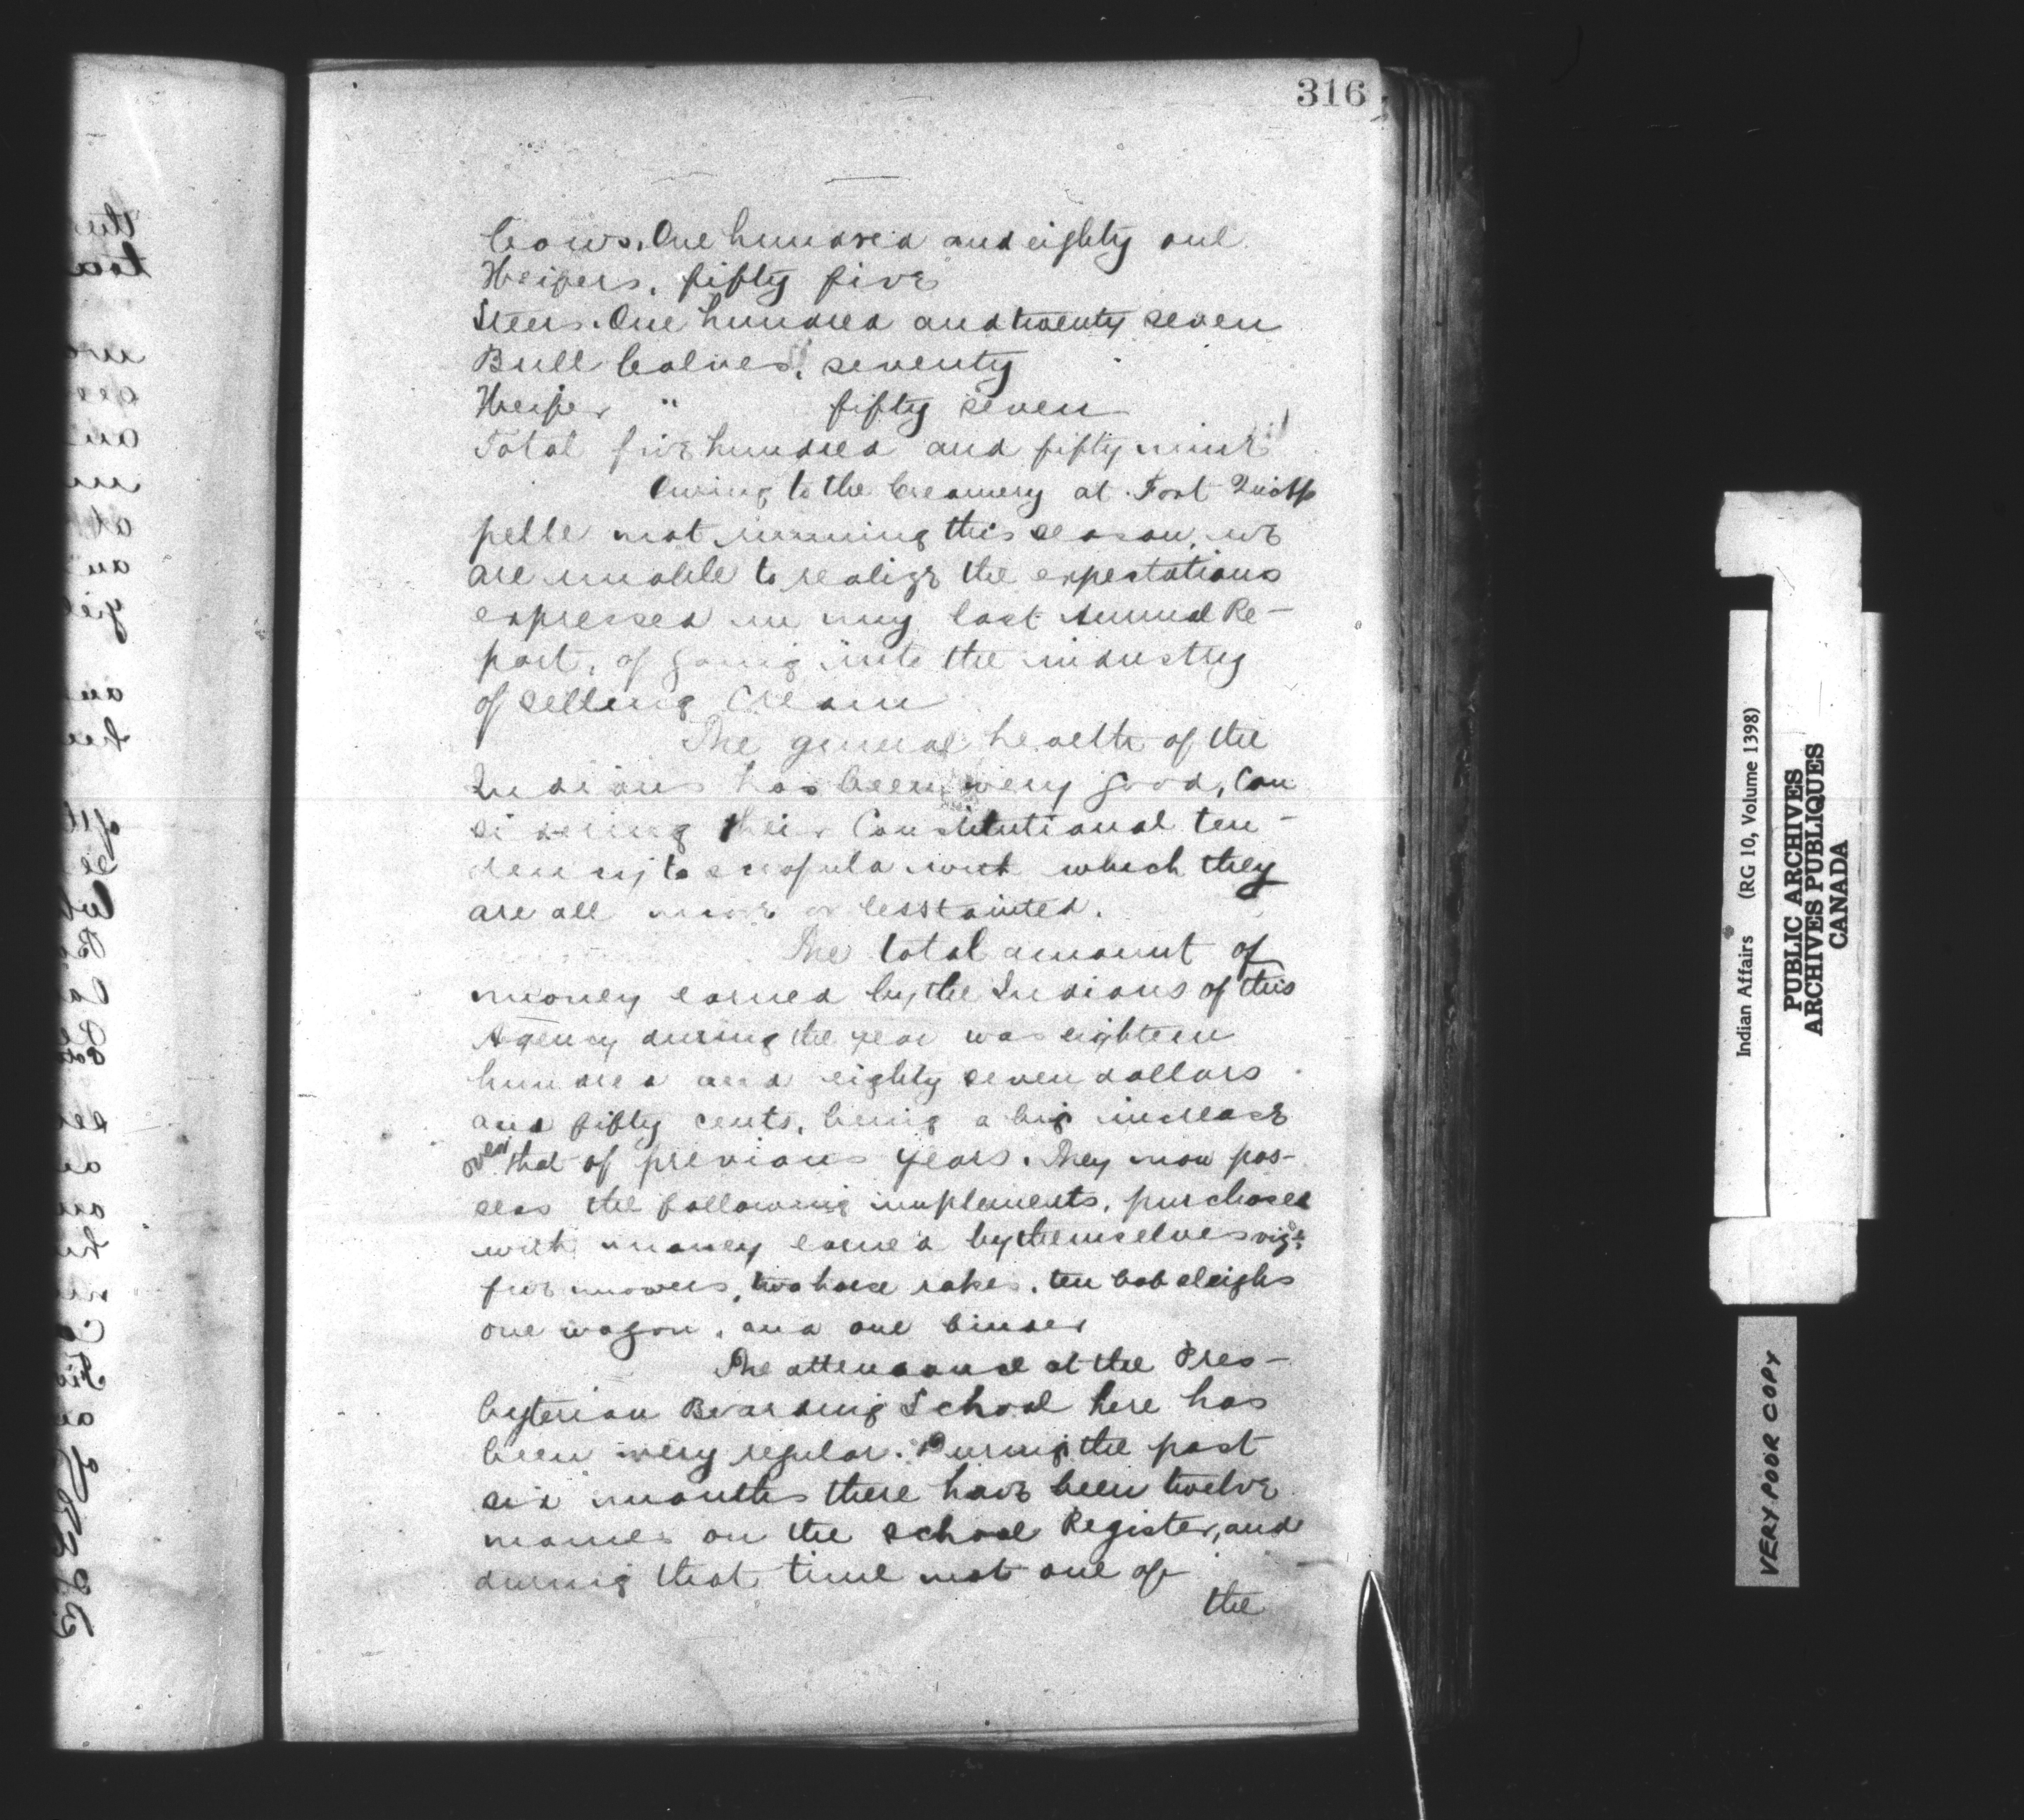 316
Cows. One hundred and eighty one
Heifers. fifty five
Steers. One hundred and twenty seven
Bull Calves. seventy
Heifer " fifty seven
Total five hundred and fifty nine
Owing to the Creamery at Fort Qu'Ap
pelle not running this season, we
are unable to realize the expectations
expressed in my last Annual Re-
port, of going into the industry
of selling Cream
The general health of the
Indians has been very good, Con
sidering their Constitutional ten-
dency to scrofula with which they
are all more or less tainted.
The total amount of
money earned by the Indians of this
Agency during the year was eighteen
hundred and eighty seven dollars
and fifty cents, being a big increase
over that of previous years. They now pos-
sess the following implements, purchased
with money earned by themselves viz:
five mowers, two horse rakes, ten bob sleighs
one wagon, and one binder
The attendance at the Pres-
byterian Boarding School here has
been very regular. During the past
six months there have been twelve
names on the school Register, and
during that time not one of
the
Indian Affairs (RG 10, Volume 1398)
PUBLIC ARCHIVES
ARCHIVES PUBLIQUES
CANADA
VERY POOR COPY